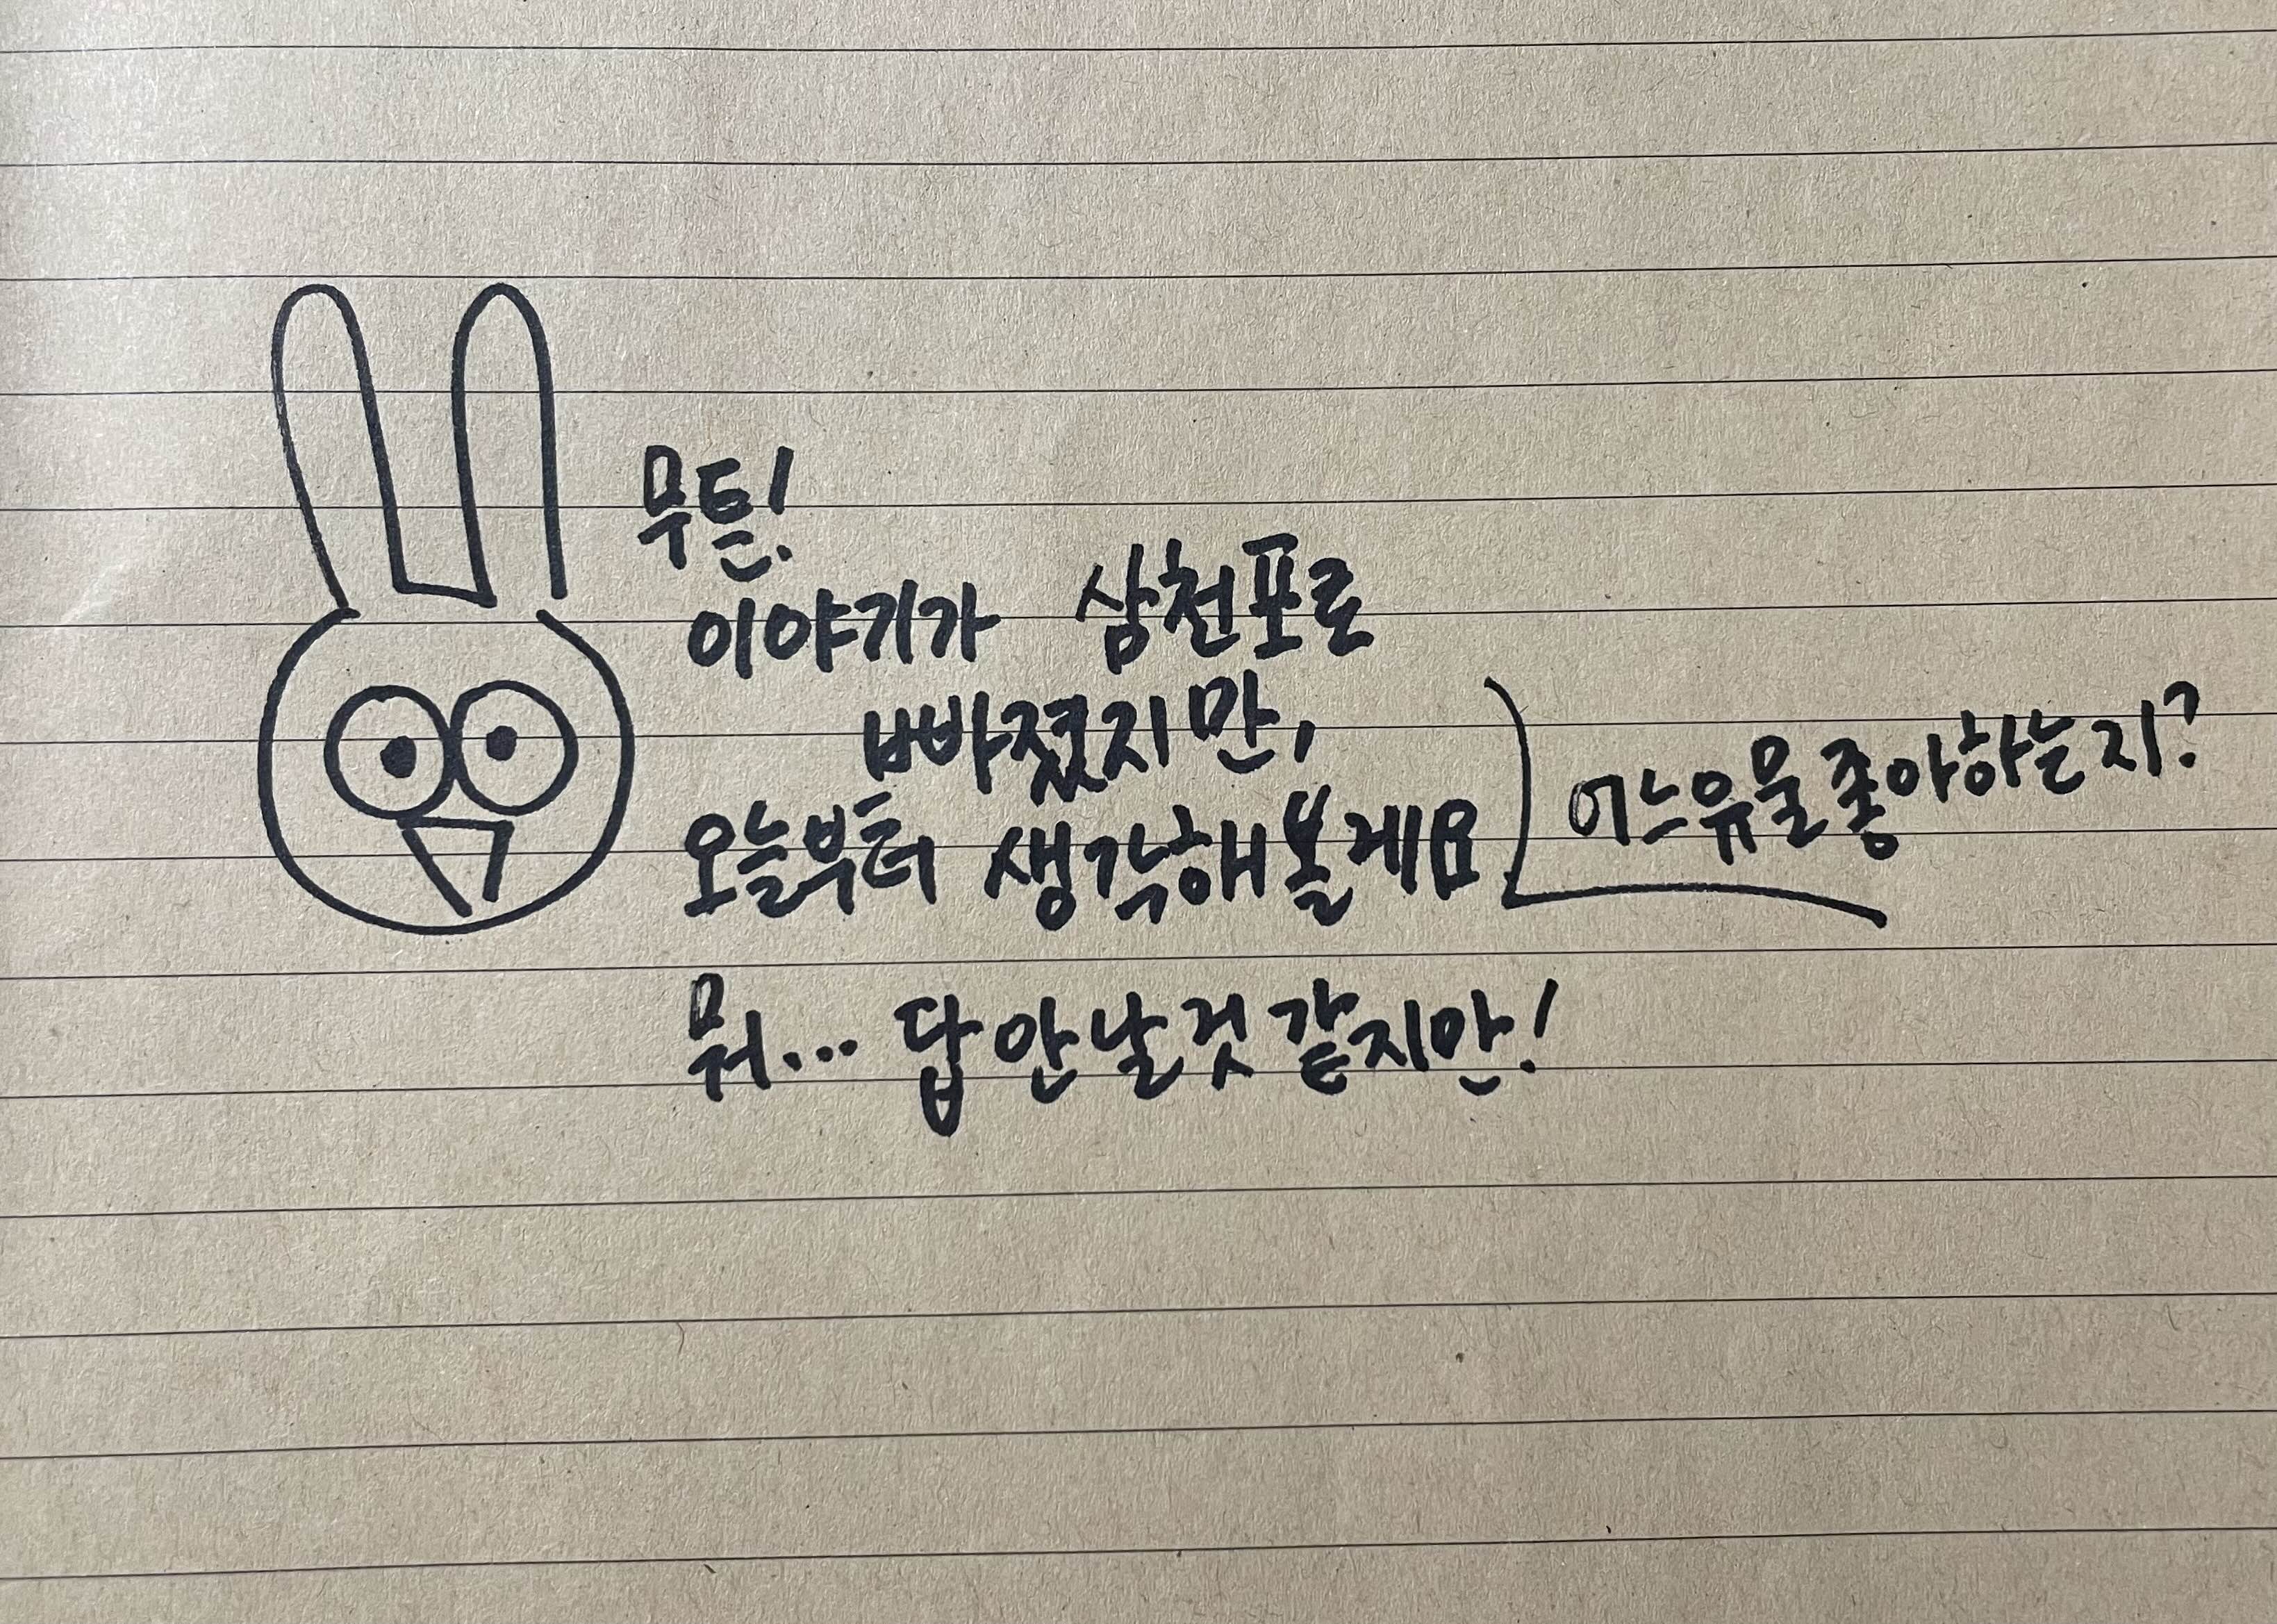 무튼!
이야기가 삼천포로
빠졌지만,
오늘부터 생각해볼게요
어느 유물 좋아하는지?
뭐... 답 안 날 것 같지만!